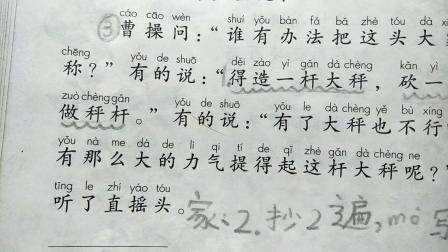 cáo cāo wèn shuí yǒu bàn fǎ bǎ zhè tóu dà
③曹操问：“谁有办法把这头大
chēng yǒu de shuō děi zào yì gǎn dà chèng kǎn yì
称？” 有的说：“得造一杆大秤，砍一
zuò chèng gǎn yǒu de shuō yǒu le dà chèng yě bù xíng
做秤杆。” 有的说：“有了大秤也不行
yǒu nà me dà de lì qi tí de qǐ zhè gǎn dà chèng ne
有那么大的力气提得起这杆大秤呢？”
tīng le zhí yáo tóu
听了直摇头。家：2.抄2遍，mò 写